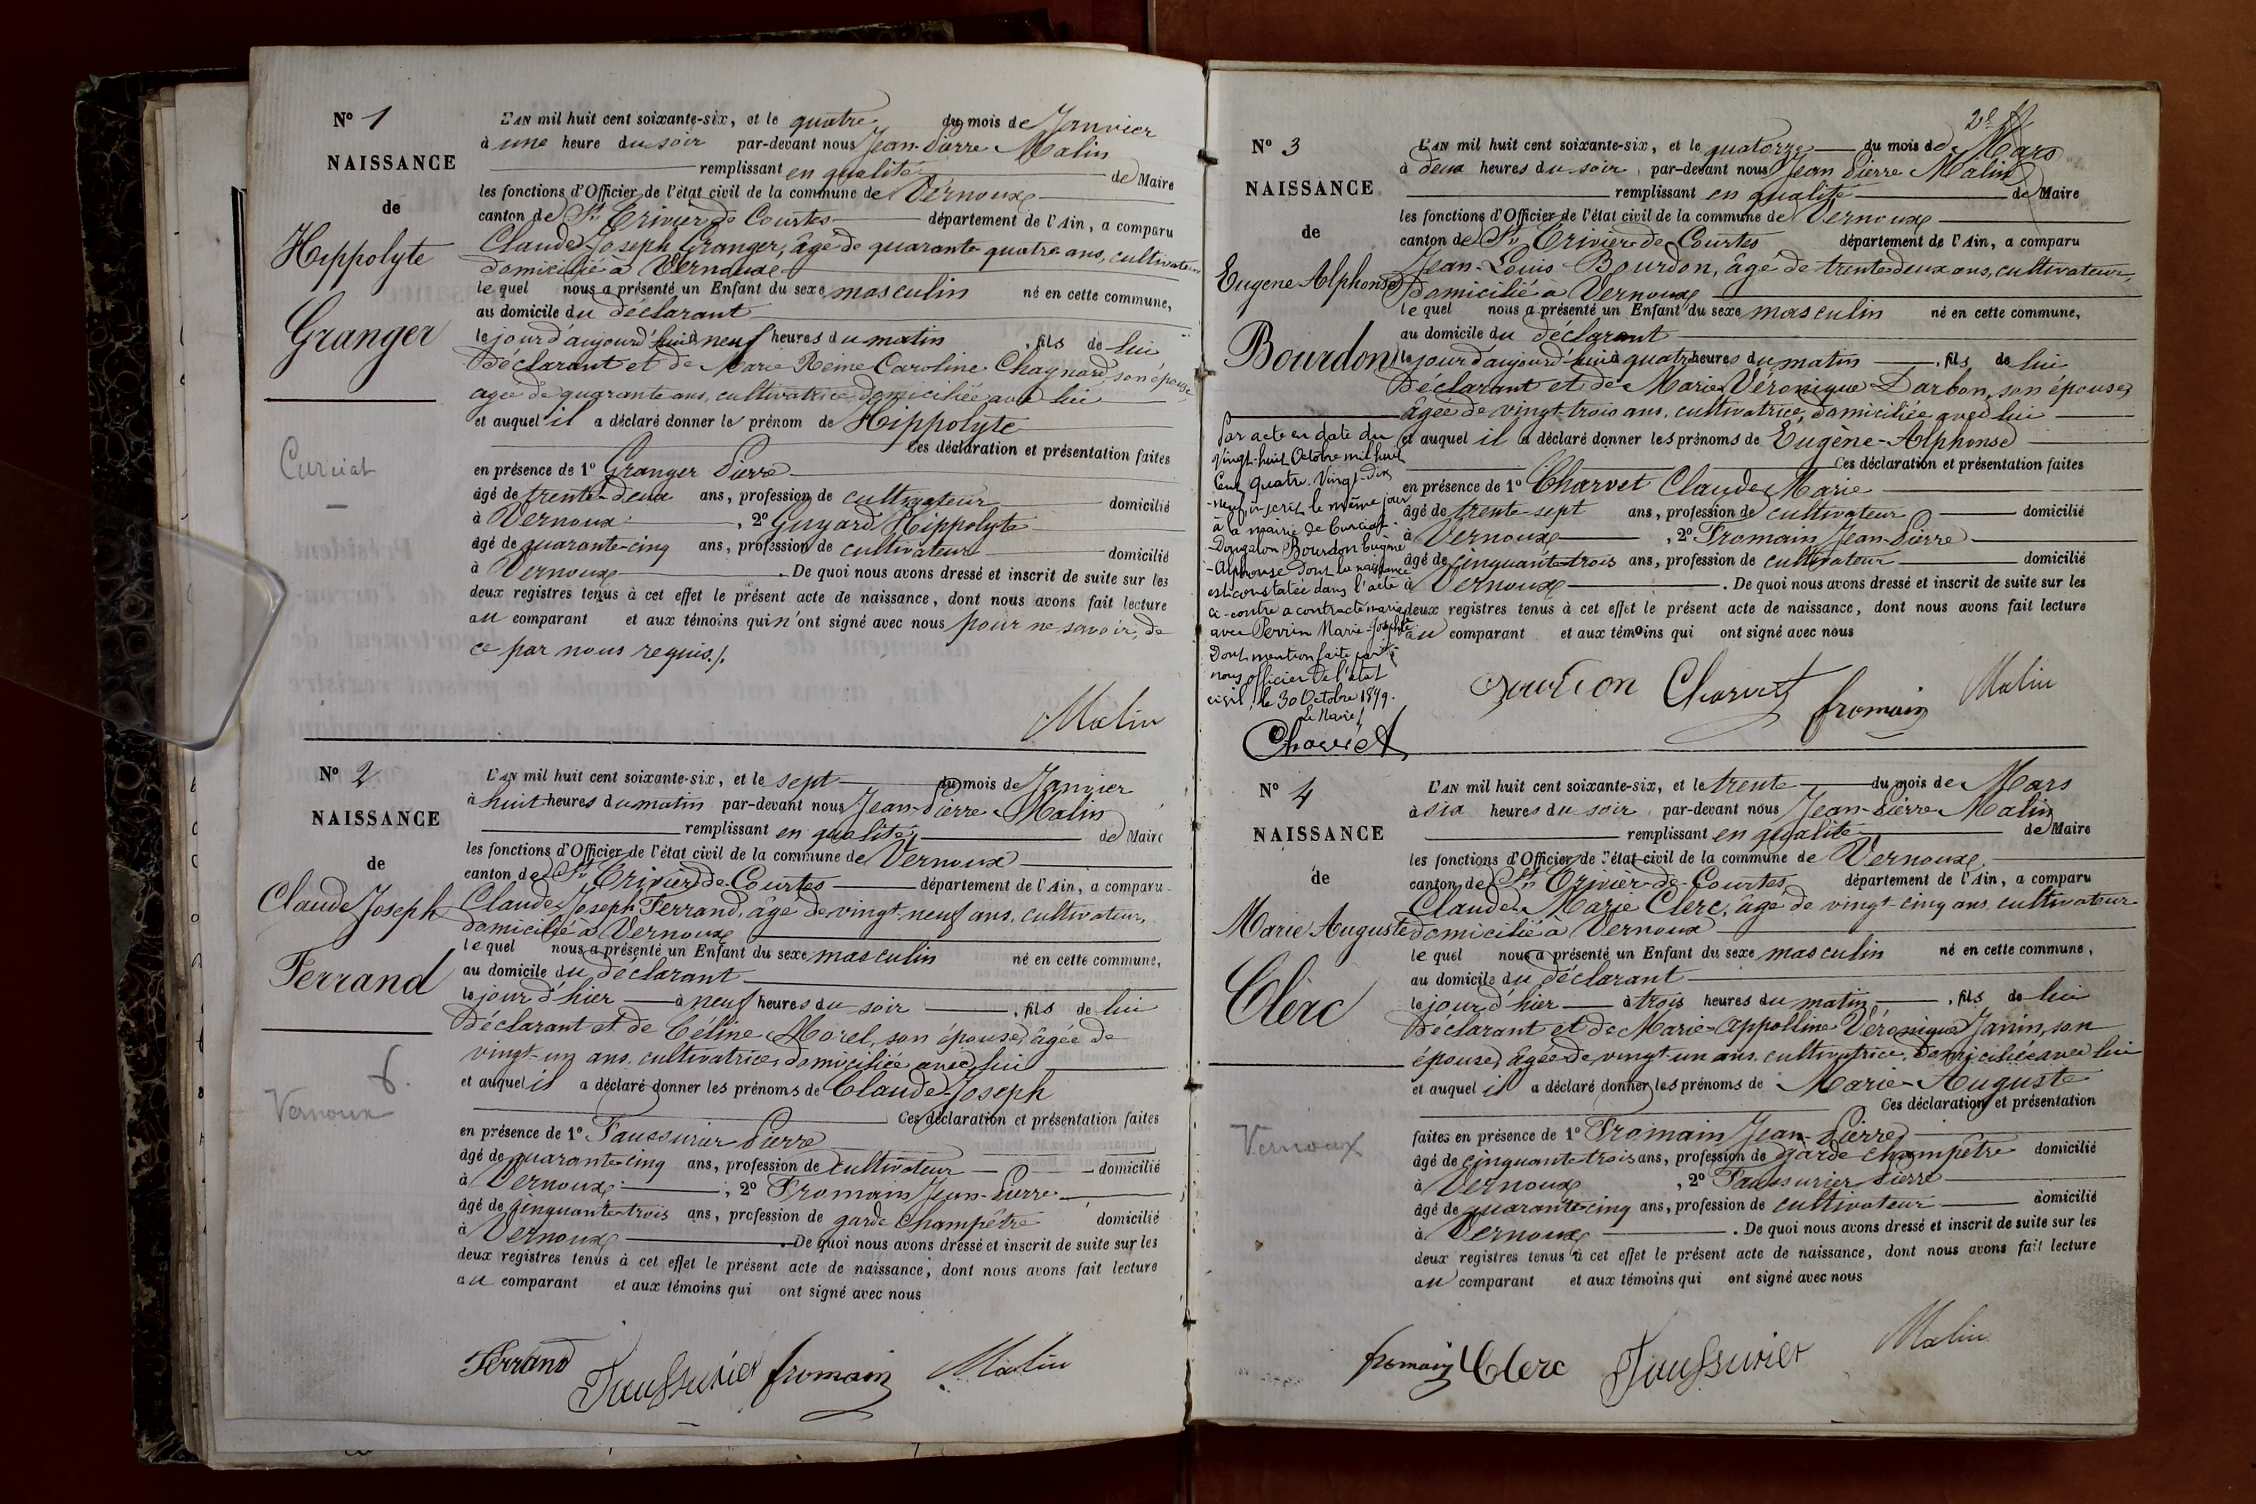 N° 1
NAISSANCE
de
Hippolyte
Granger
Curciat
L'AN mil huit cent soixante-six, et le quatre du mois de Janvier
à une heure du soir par-devant nous Jean-Pierre Malin
remplissant en qualité de Maire
les fonctions d'Officier de l'état civil de la commune de Vernoux
canton de St Trivier de Courtes département de l'Ain, a comparu
Claude-Joseph Granger, âgé de quarante quatre ans, cultivateur
domicilié à Vernoux
lequel nous a présenté un Enfant du sexe masculin né en cette commune,
au domicile du déclarant
le jour d'aujourd'hui à neuf heures du matin, fils de lui
Déclarant et de Marie Reine Caroline Chagnard, son épouse
agée de quarante ans, cultivatrice, domiciliée avec lui
et auquel il a déclaré donner le prénom de Hippolyte
Ces déclaration et présentation faites
en présence de 1° Granger Pierre
âgé de trente-deux ans, profession de cultivateur domicilié
à Vernoux, 2° Guyard Hippolyte
âgé de quarante-cinq ans, profession de cultivateur domicilié
à Vernoux. De quoi nous avons dressé et inscrit de suite sur les
deux registres tenus à cet effet le présent acte de naissance, dont nous avons fait lecture
au comparant et aux témoins qui n'ont signé avec nous pour ne savoir, de
ce par nous requis./.
Malin
N° 2
NAISSANCE
de
Claude Joseph
Ferrand
6.
Vernoux
L'AN mil huit cent soixante-six, et le sept du mois de Janvier
à huit heures du matin par-devant nous Jean-Pierre Malin
remplissant en qualité de Maire
les fonctions d'Officier de l'état civil de la commune de Vernoux
canton de St Trivier de Courtes département de l'Ain, a comparu
Claude Joseph Ferrand, âgé de vingt-neuf ans, cultivateur,
domicilié à Vernoux
lequel nous a présenté un Enfant du sexe masculin né en cette commune,
au domicile du déclarant
le jour d'hier à neuf heures du soir, fils de lui
Déclarant et de Céline Morel, son épouse, âgée de
vingt-un ans, cultivatrice, domiciliée avec lui
et auquel il a déclaré donner les prénoms de Claude-Joseph
Ces déclaration et présentation faites
en présence de 1° Faussurier Pierre
âgé de quarante-cinq ans, profession de cultivateur domicilié
à Vernoux, 2° Fromain Jean-Pierre
âgé de cinquante-trois ans, profession de garde champêtre domicilié
à Vernoux. De quoi nous avons dressé et inscrit de suite sur les
deux registres tenus à cet effet le présent acte de naissance, dont nous avons fait lecture
au comparant et aux témoins qui ont signé avec nous
Ferrand Faussurier fromain Malin
N° 3
NAISSANCE
de
Eugène Alphonse
Bourdon
Par acte en date du
vingt-huit Octobre mil huit
Cent quatre-Vingt-Dix
-neuf inscrit le même jour
à la mairie de Curciat-
Dongalon Bourdon Eugène
-Alphonse dont la naissance
est constatée dans l'acte
ci-contre a contracté mariage
avec Perrin Marie-Josephte
Dont mention faite par
nous officier de l'état
civil, le 30 Octobre 1899.
Le Maire,
Charvet
2e ff
L'AN mil huit cent soixante-six, et le quatorze du mois de Mars
à deux heures du soir par-devant nous Jean Pierre Malin
remplissant en qualité de Maire
les fonctions d'Officier de l'état civil de la commune de Vernoux
canton de St Trivier de Courtes département de l'Ain, a comparu
Jean-Louis Bourdon, âgé de trente-deux ans, cultivateur,
domicilié à Vernoux
lequel nous a présenté un Enfant du sexe masculin né en cette commune,
au domicile du déclarant
le jour d'aujourd'hui à quatre heures du matin, fils de lui
Déclarant et de Marie Véronique Darbon, son épouse,
âgée de vingt-trois ans, cultivatrice, domiciliée avec lui
et auquel il a déclaré donner les prénoms de Eugène-Alphonse
Ces déclaration et présentation faites
en présence de 1° Charvet Claude Marie
âgé de trente-sept ans, profession de cultivateur domicilié
à Vernoux, 2° Fromain Jean-Pierre
âgé de cinquante-trois ans, profession de cultivateur domicilié
à Vernoux. De quoi nous avons dressé et inscrit de suite sur les
deux registres tenus à cet effet le présent acte de naissance, dont nous avons fait lecture
au comparant et aux témoins qui ont signé avec nous
Bourdon Charvet fromain Malin
N° 4
NAISSANCE
de
Marie Auguste
Clerc
Vernoux
L'AN mil huit cent soixante-six, et le trente du mois de Mars
à six heures du soir par-devant nous Jean-Pierre Malin
remplissant en qualité de Maire
les fonctions d'Officier de l'état civil de la commune de Vernoux
canton de St Trivier-de-Courtes département de l'Ain, a comparu
Claude Marie Clerc, âgé de vingt-cinq ans, cultivateur
domicilié à Vernoux
lequel nous a présenté un Enfant du sexe masculin né en cette commune,
au domicile du déclarant
le jour d'hier à trois heures du matin, fils de lui
Déclarant et de Marie-Appolline Véronique Janin, son
épouse, âgée de vingt-un ans, cultivatrice, domiciliée avec lui
et auquel il a déclaré donner les prénoms de Marie-Auguste
Ces déclaration et présentation
faites en présence de 1° Fromain Jean-Pierre
âgé de cinquante-trois ans, profession de garde champêtre domicilié
à Vernoux, 2° Faussurier Pierre
âgé de quarante-cinq ans, profession de cultivateur domicilié
à Vernoux. De quoi nous avons dressé et inscrit de suite sur les
deux registres tenus à cet effet le présent acte de naissance, dont nous avons fait lecture
au comparant et aux témoins qui ont signé avec nous
fromain Clerc Faussurier Malin